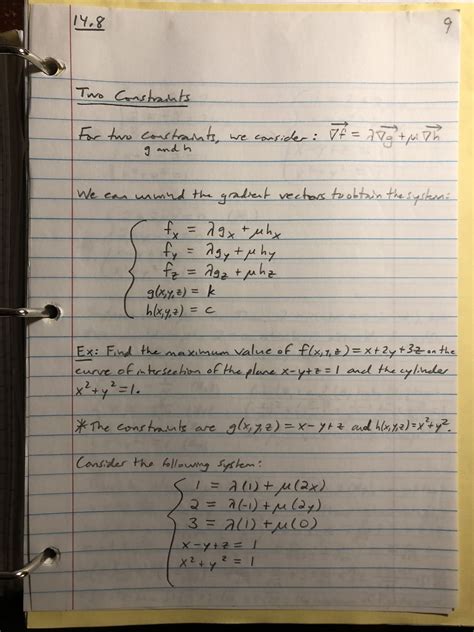 14.8
9
Two Constraints
For two constraints, we consider: ∇f = λ∇g + μ∇h
g and h
We can unwind the gradient vectors to obtain the system:
fx = λgx + μhx
fy = λgy + μhy
fz = λgz + μhz
g(x,y,z) = k
h(x,y,z) = c
Ex: Find the maximum value of f(x,y,z) = x+2y+3z on the
curve of intersection of the plane x-y+z=1 and the cylinder
x²+y²=1.
*The constraints are g(x,y,z) = x-y+z and h(x,y,z)=x²+y².
Consider the following system:
1 = λ(1) + μ(2x)
2 = λ(-1) + μ(2y)
3 = λ(1) + μ(0)
x-y+z = 1
x²+y² = 1